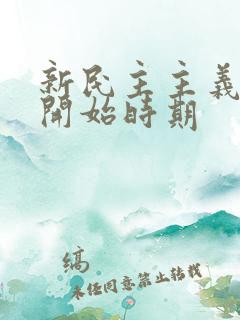 新民主主義
開始時期
縞
未经同意禁止转载